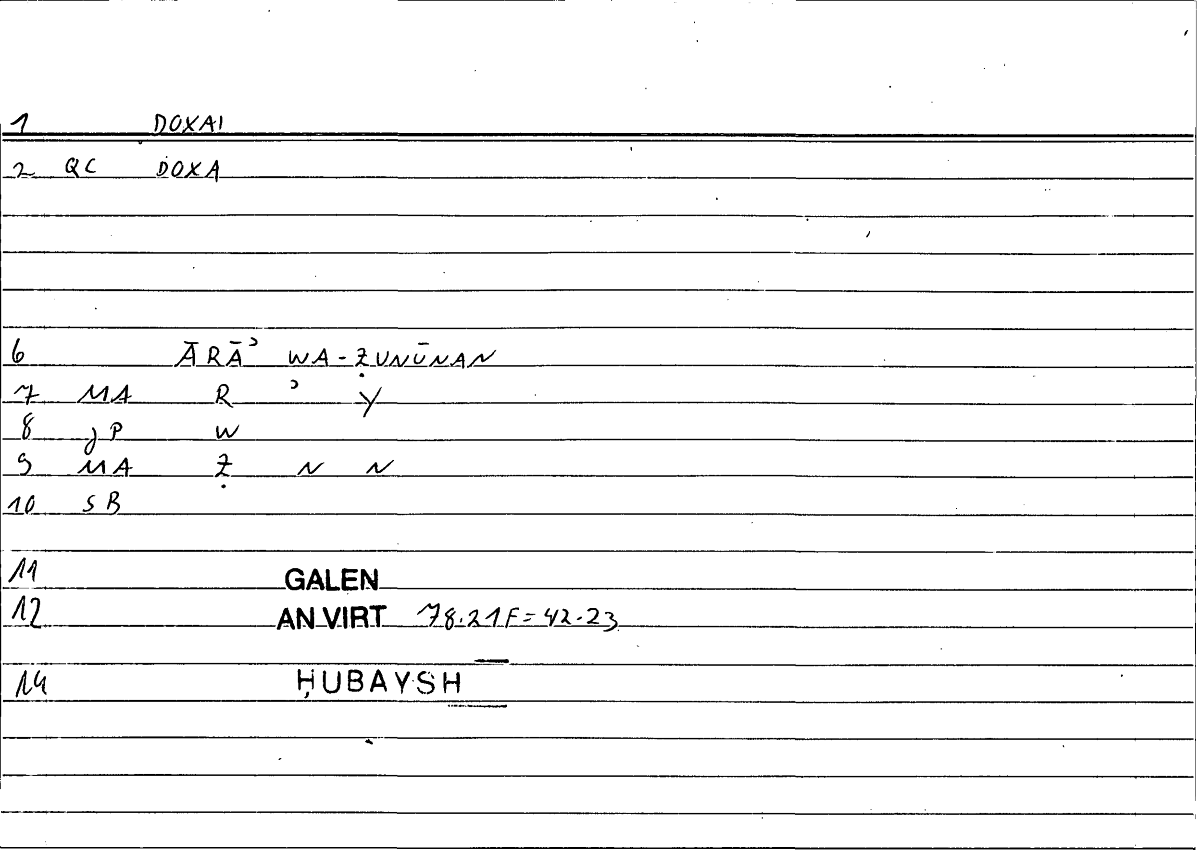 1 DOXAI
2 QC DOXA
6 ĀRĀʾ WA-ẒUNŪNAN
7 MA R ʾ Y
8 JP W
9 MA Ẓ N N
10 SB
11 GALEN
12 AN VIRT 78.21F=42.23
14 ḤUBAYSH